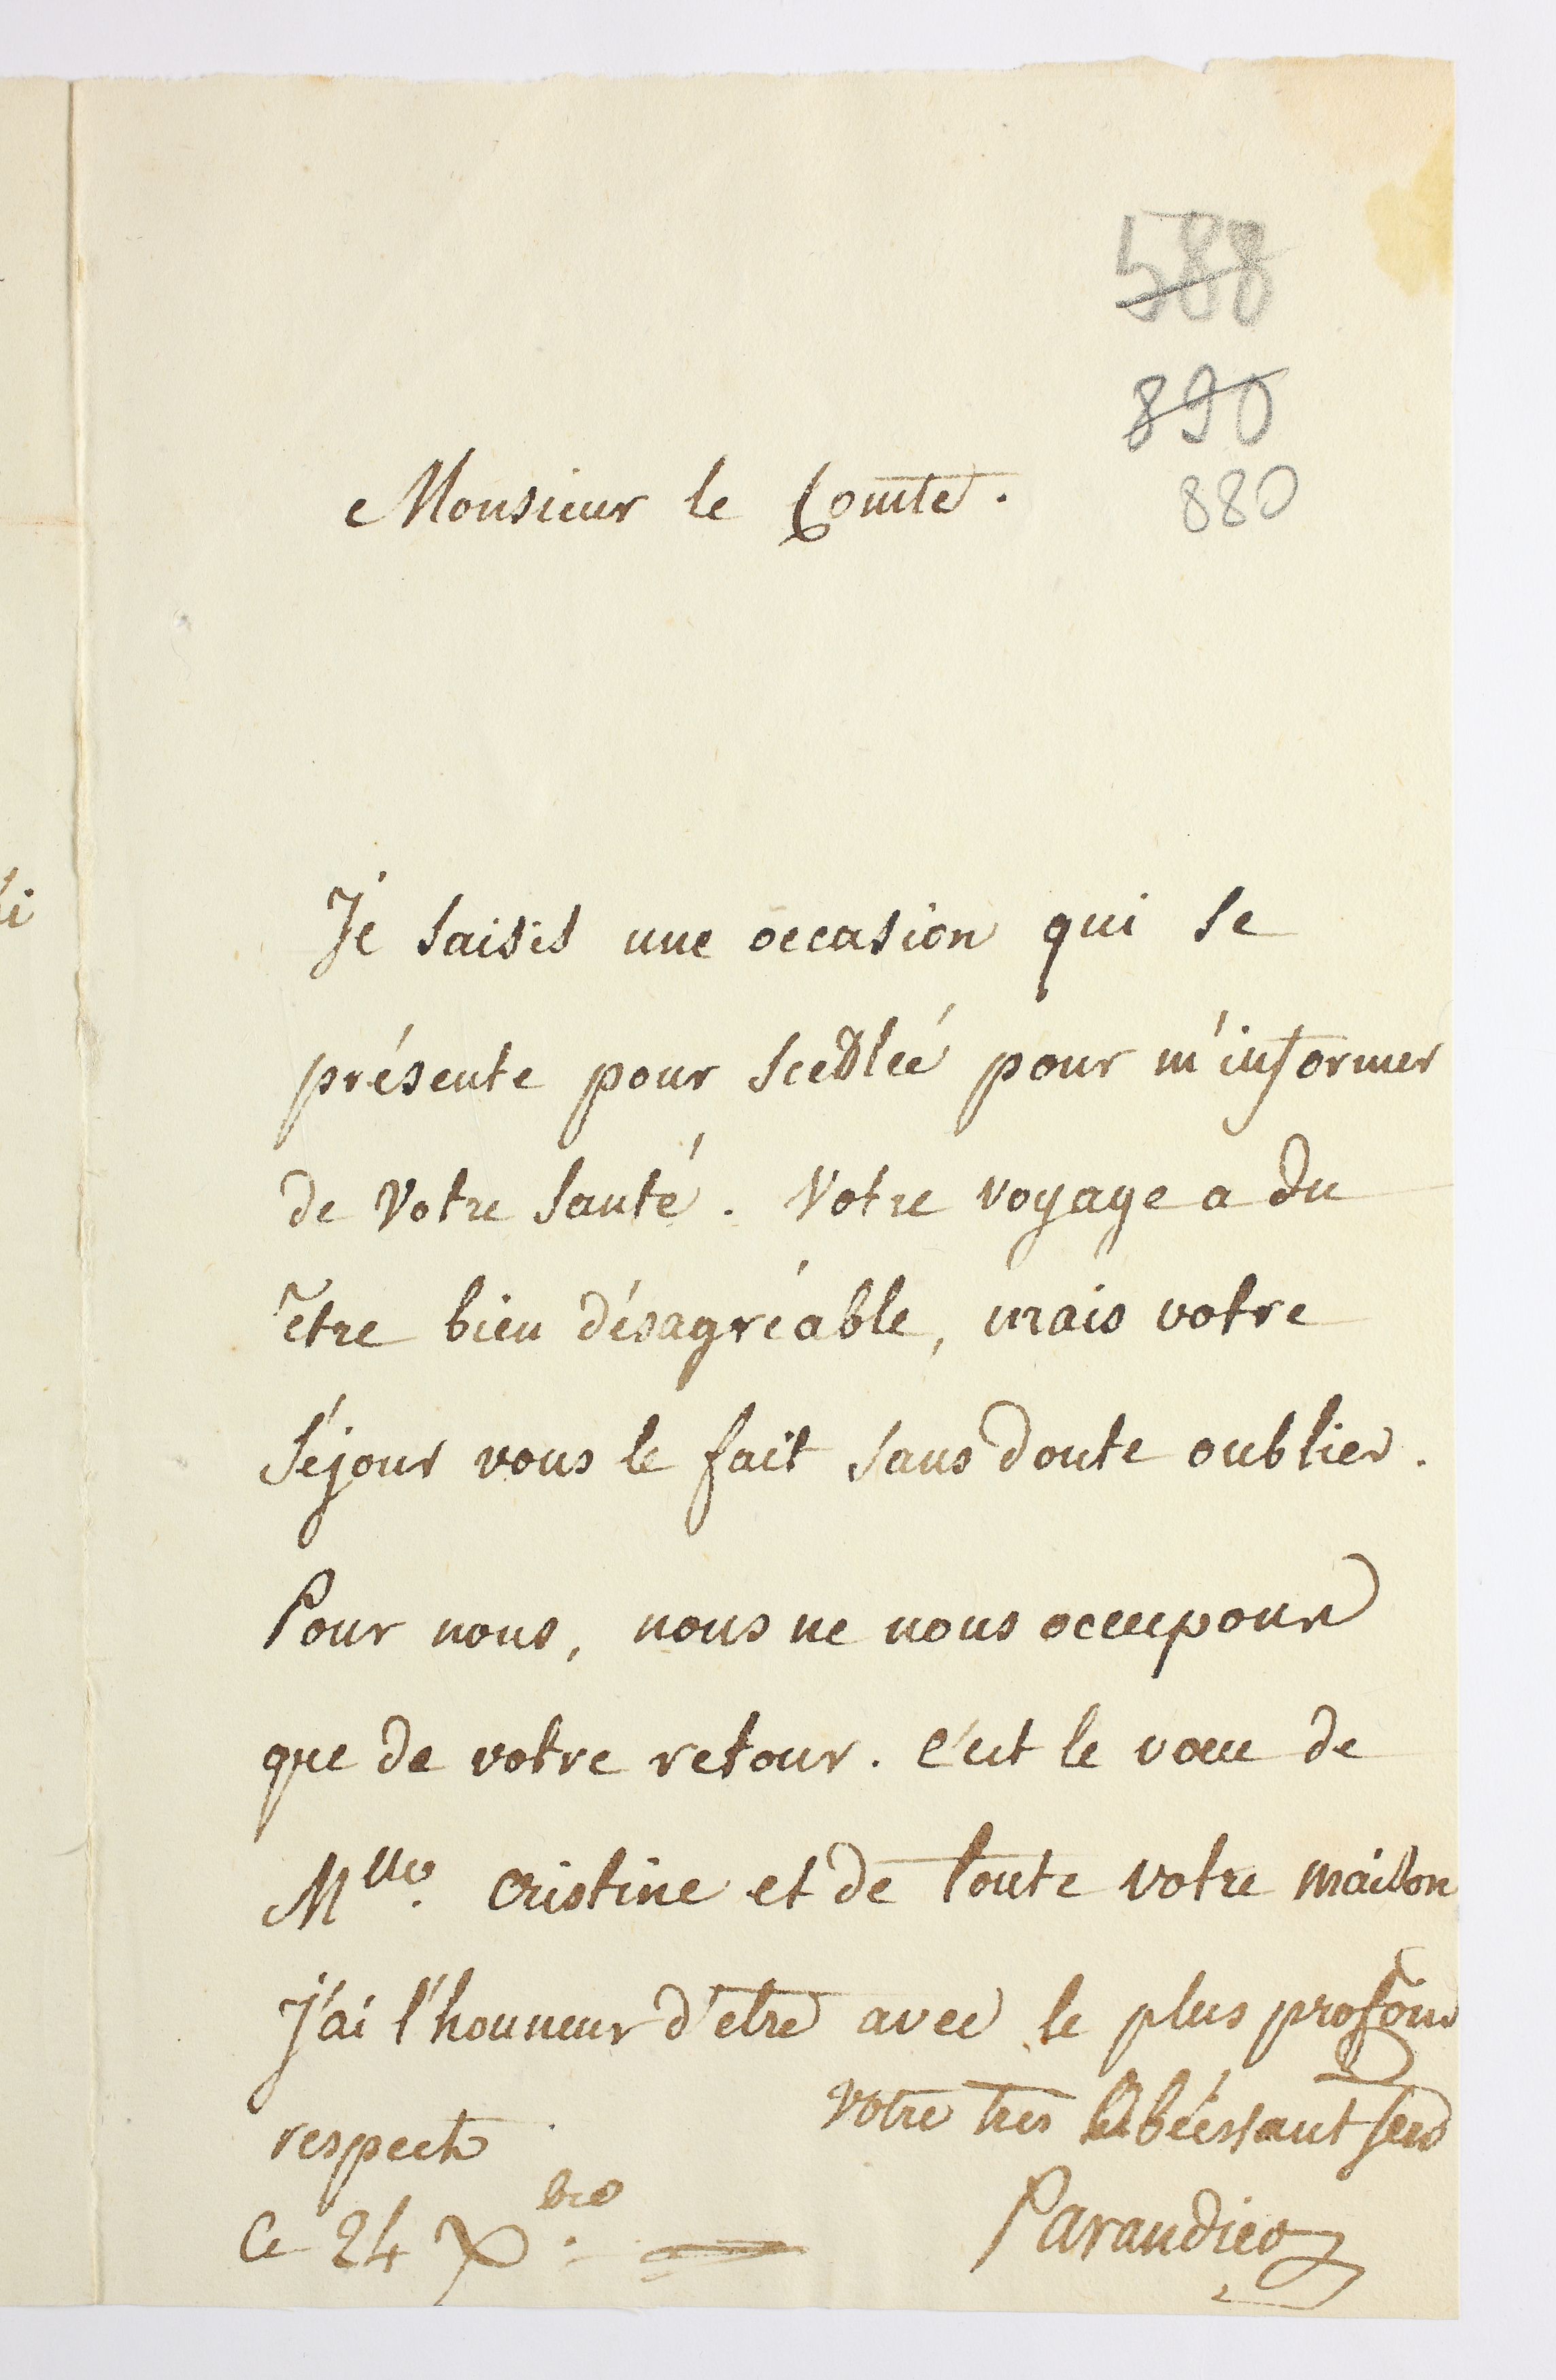 588
890
Monsieur le Comte.
880
Je saisis une occasion qui se
présente pour Siedlcé pour m'informer
de Votre Santé. Votre voyage a du
être bien désagréable, mais votre
Séjour vous le fait sans doute oublier.
Pour nous, nous ne nous occupons
que de votre retour. c'est le vœu de
Mlle. Cristine et de toute votre maison
J'ai l'honneur d'etre avec le plus profond
respect
votre très Obéissant Serv
Ce 24 Xbre.
Parandier